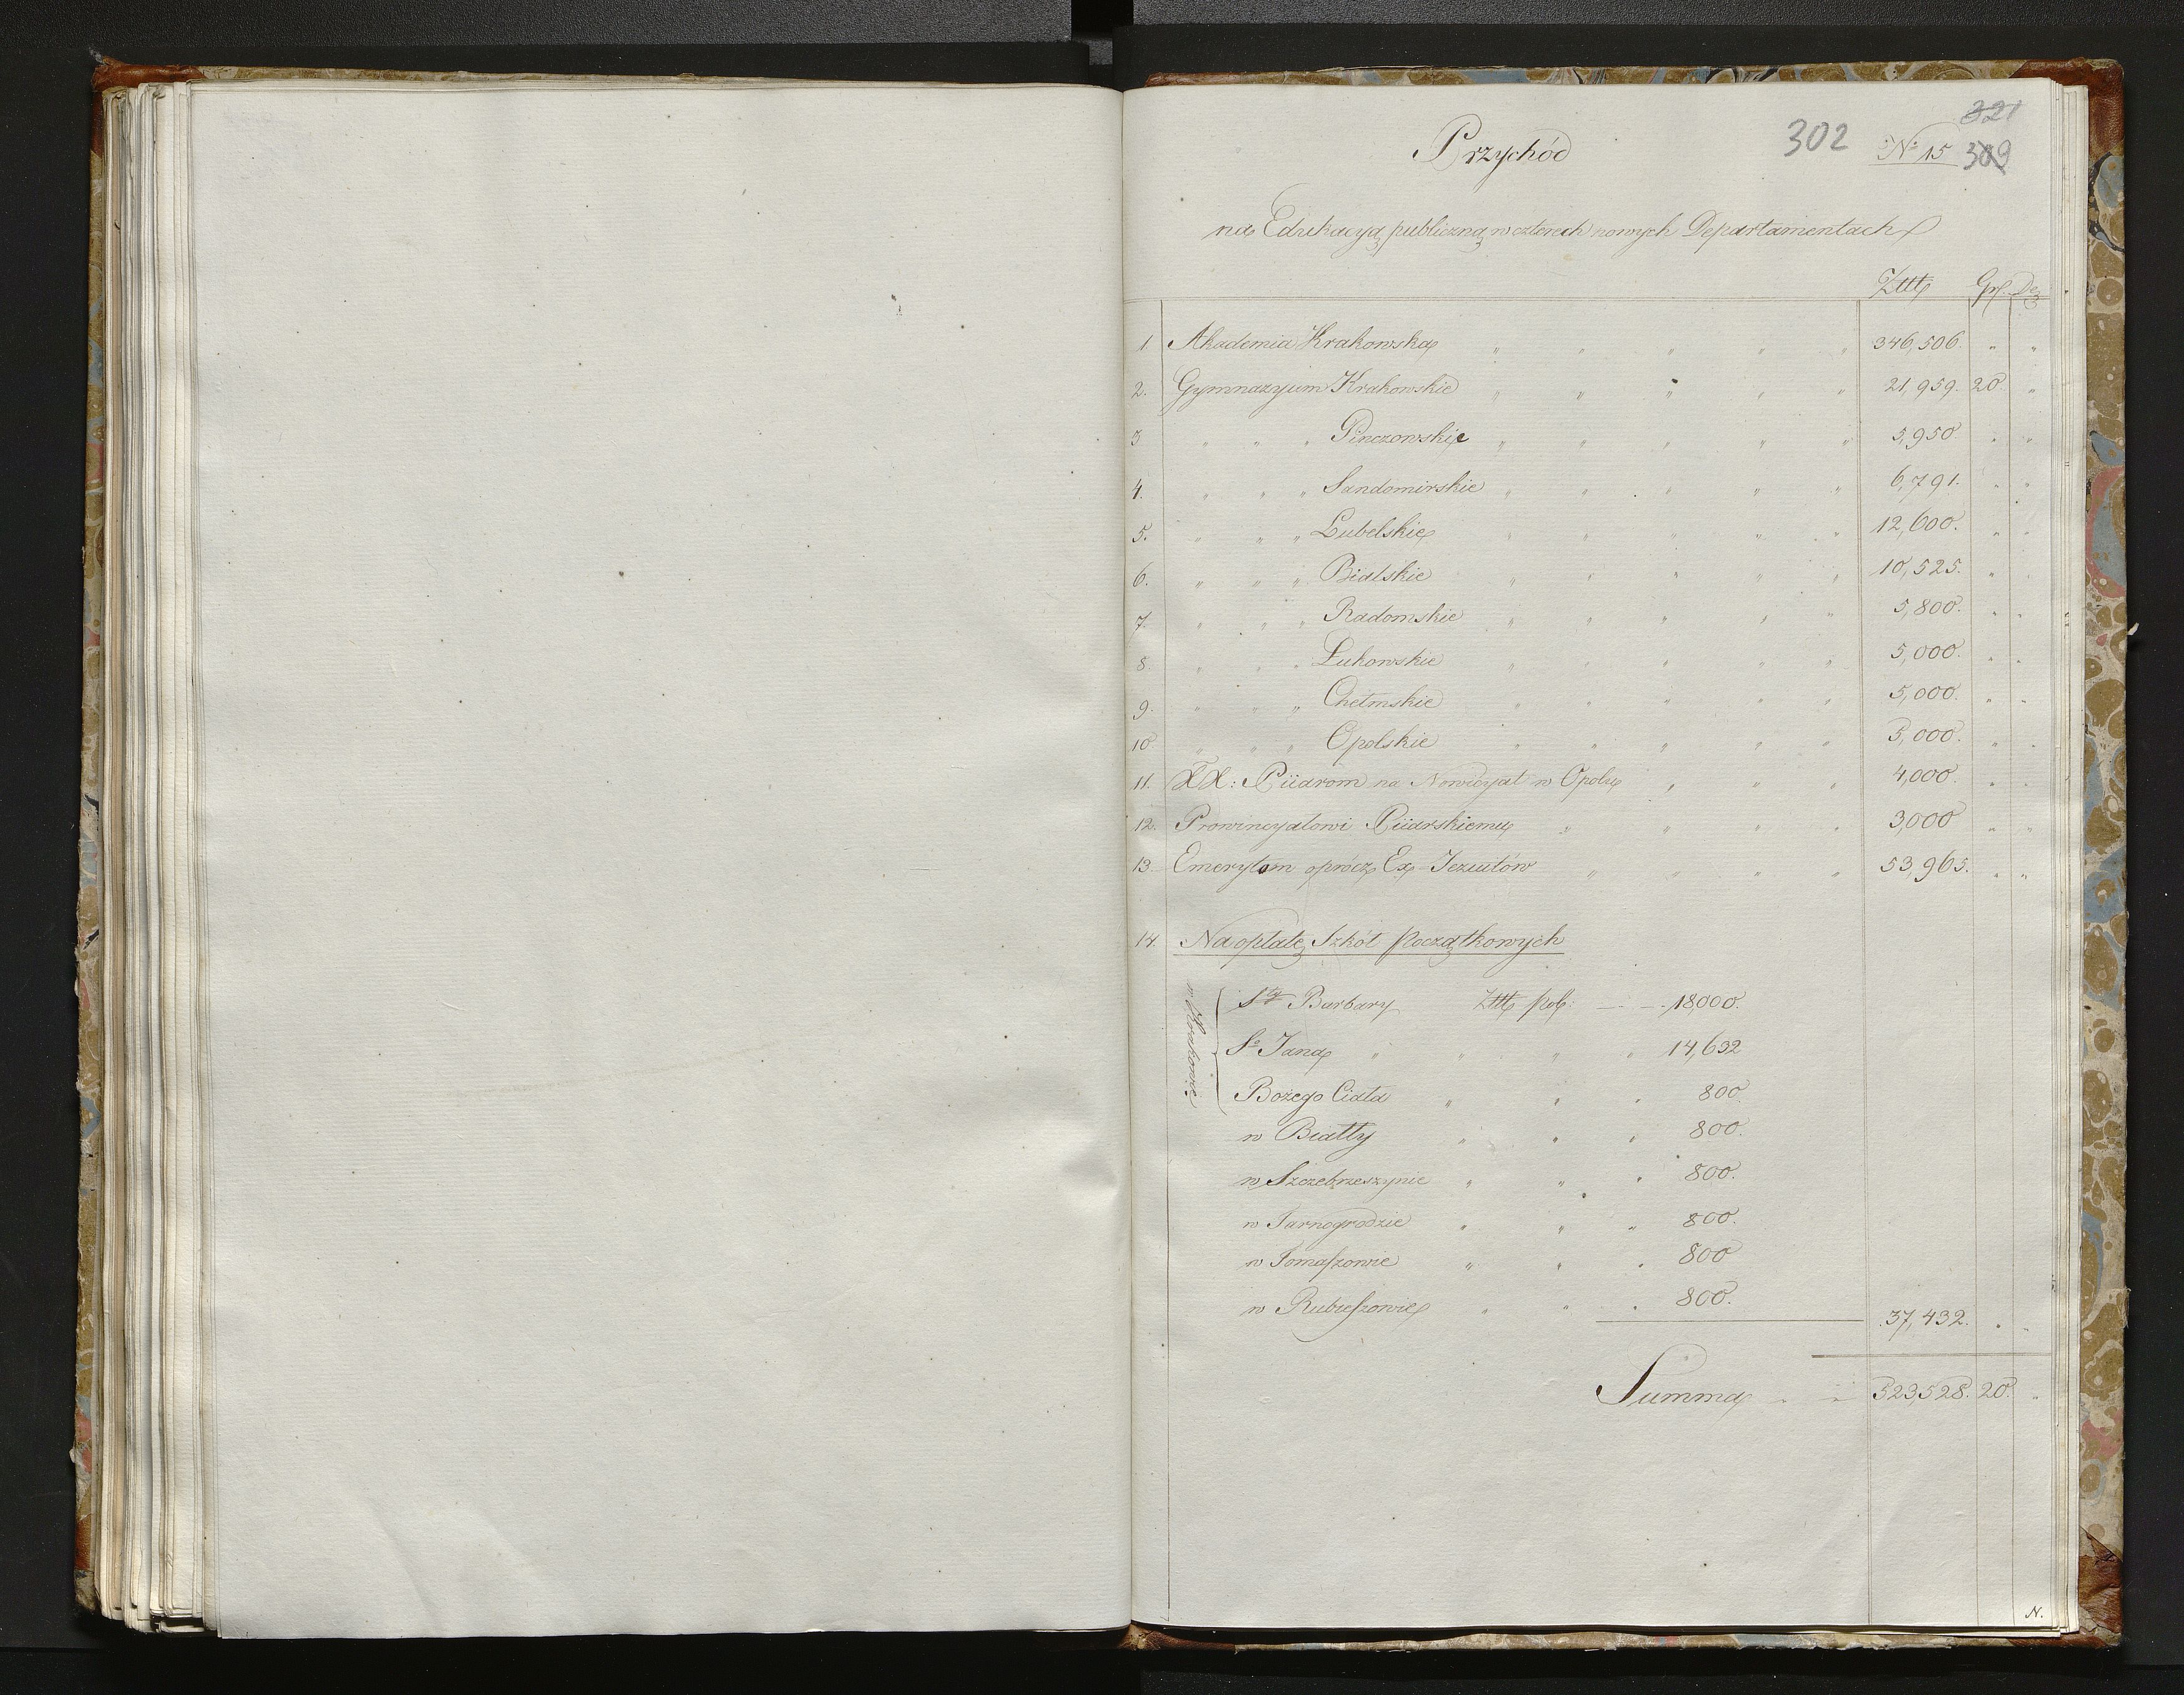 321
Przychód 302 No 15 309
na Edukacyą publiczną w czterech nowych Departamentach
Złtt Gr. De
1. Akademia Krakowska " " " " " 346,506. " "
2. Gymnazyum Krakowskie " " " " " 21,959. 20. "
3 " " " Pinczowskie " " " " " 5,950 " "
4. " " " Sandomirskie " " " " " 6,791. " "
5. " " " Lubelskie " " " " " 12,600. " "
6. " " " Bialskie " " " " " 10,525. " "
7. " " " Radomskie " " " " " 5,800. " "
8. " " " Łukowskie " " " " " 5,000. " "
9. " " " Chełmskie " " " " " 5,000. " "
10. " " " Opolskie " " " " " 3,000. " "
11. XX: Piiarom na Nowicyat w Opolu " " " 4,000. " "
12. Prowincyałowi Piiarskiemu " " " " 3,000 " "
13. Emerytom oprócz Ex-Jezuitów " " " " 53,965. " "
14. Na opłatę Szkół Początkowych
w Krakowie
Sty Barbary Złtt pol: — — 18,000.
Sgo Jana " " " " 14,632
Bożego Ciała " " " 800.
w Białły " " " 800.
w Szczebrzeszynie " " " 800.
w Tarnogrodzie " " " 800.
w Tomaszowie " " " 800
w Rubieszowie " " " 800. 37,432. " "
Summa " " 523,528. 20. "
N.